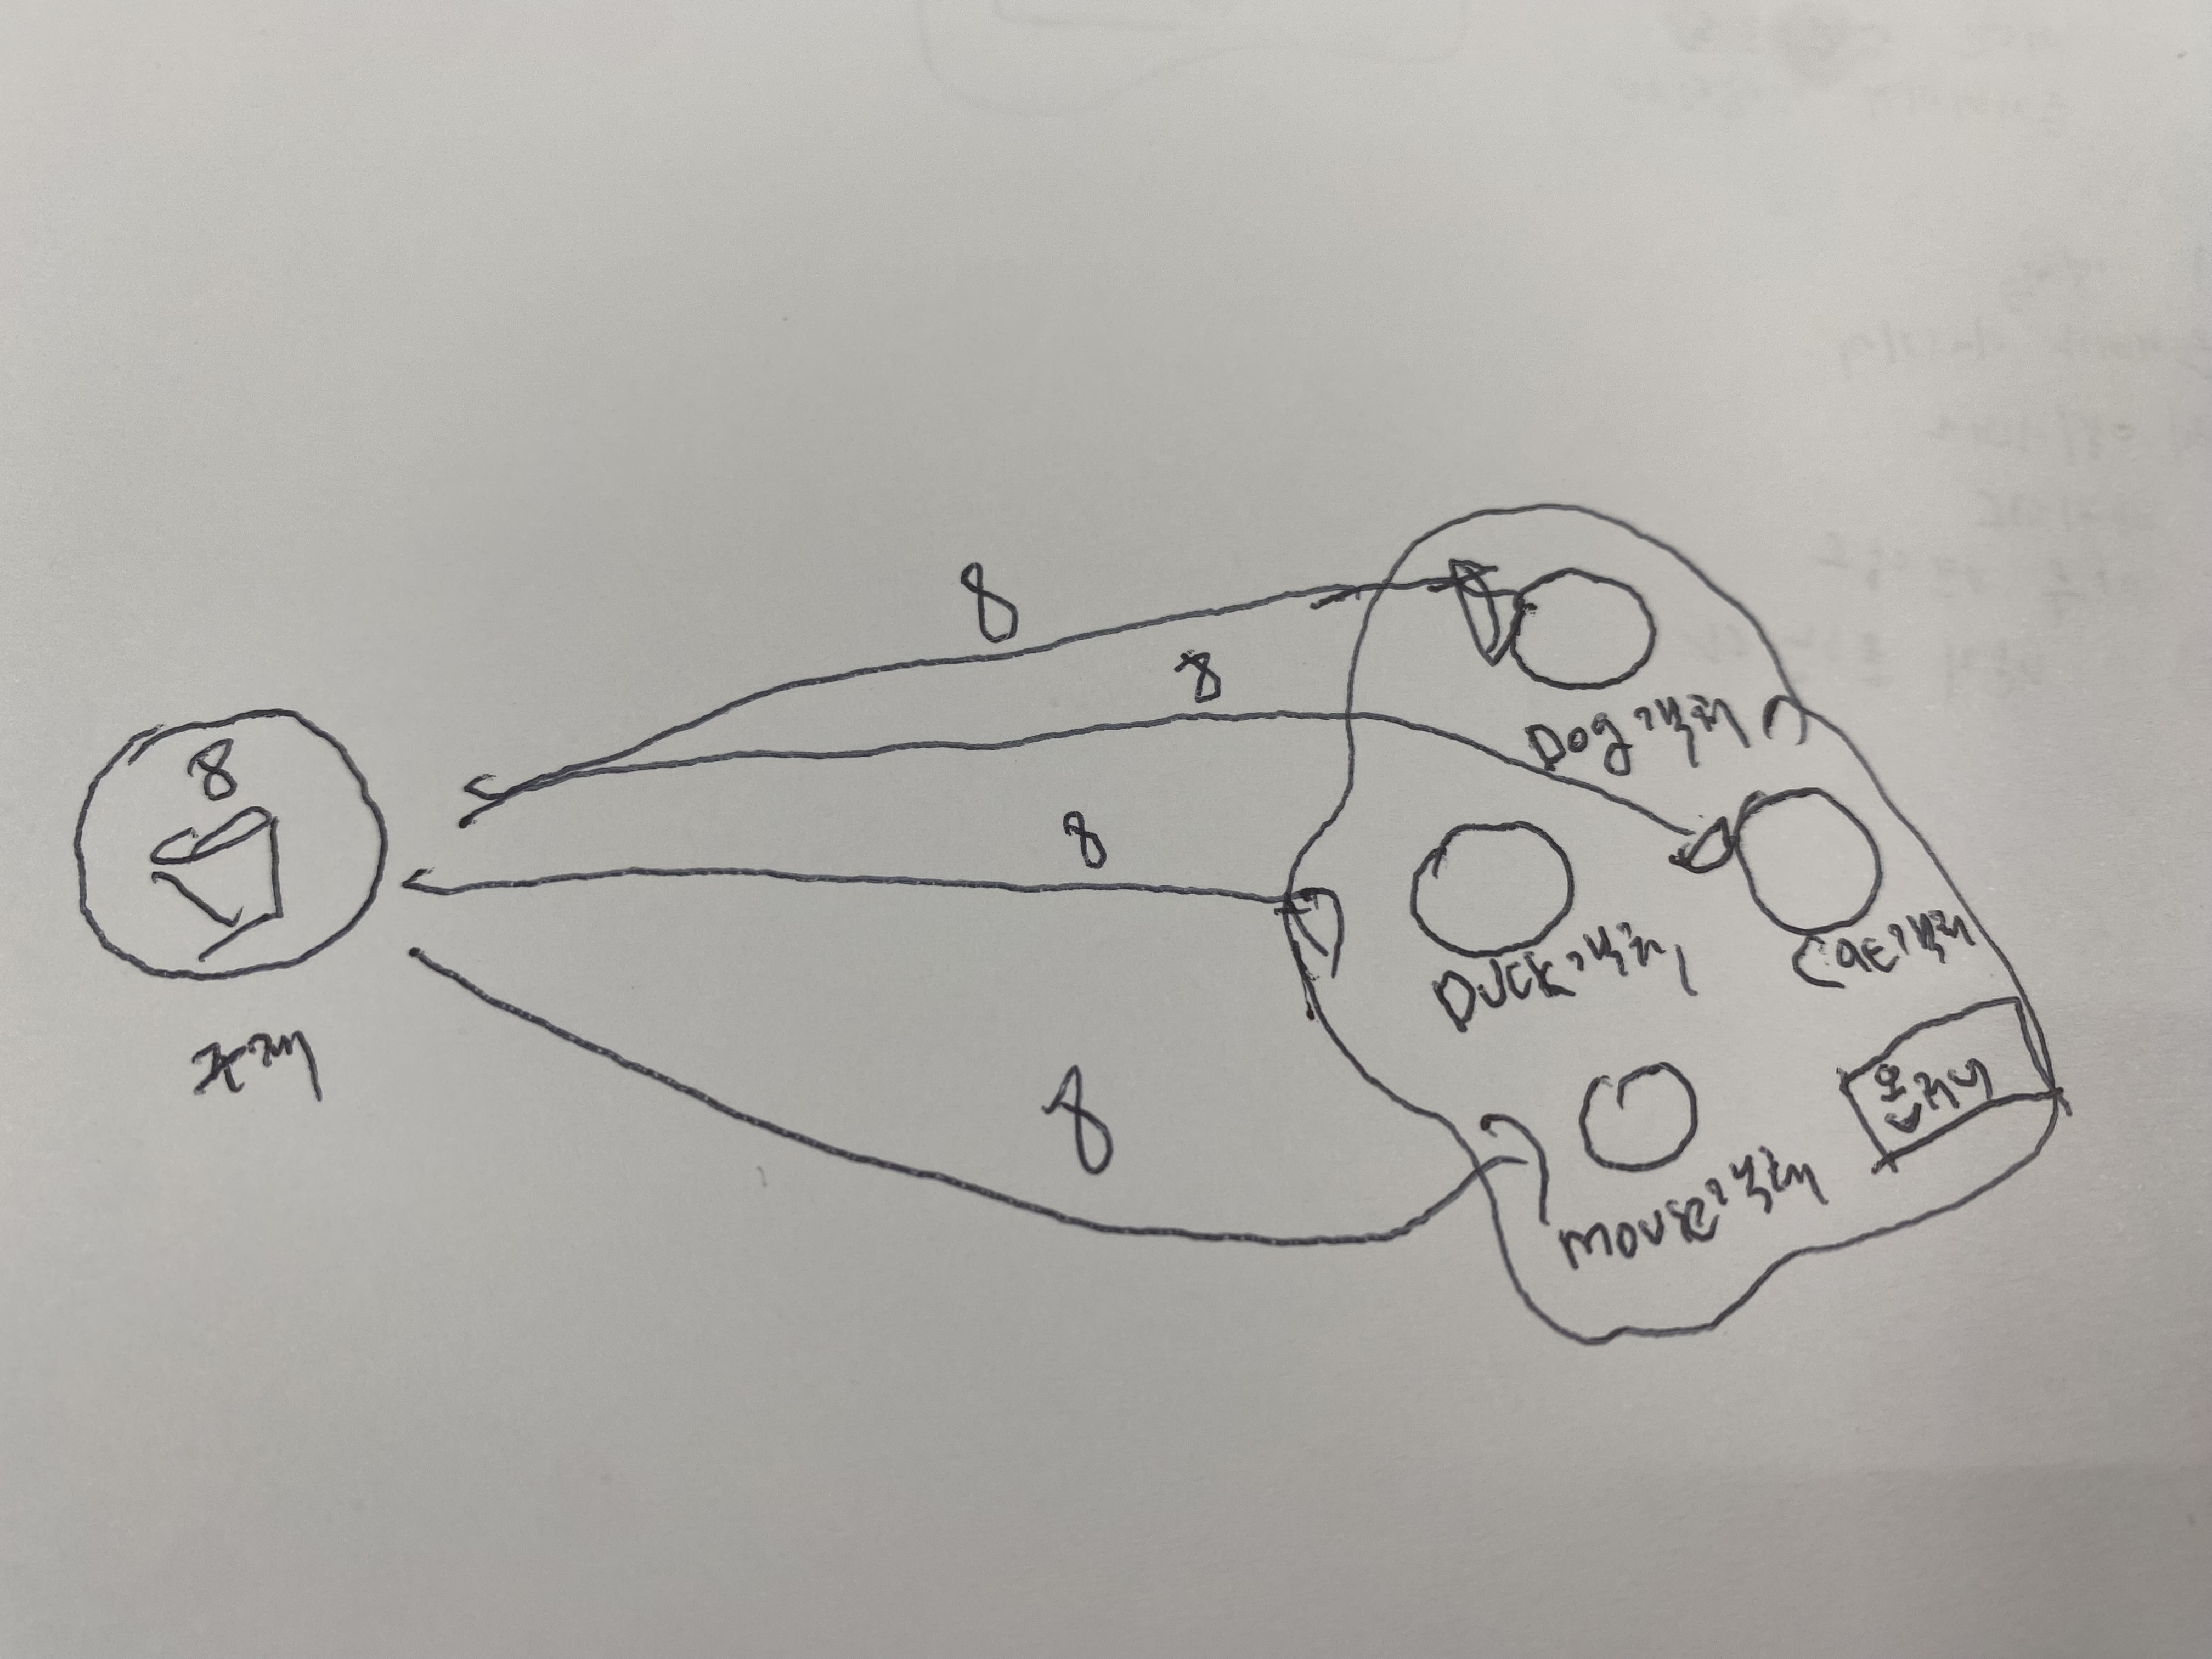 8
8
8
8
8
Dog 객체
Duck 객체
Cat 객체
mouse 객체